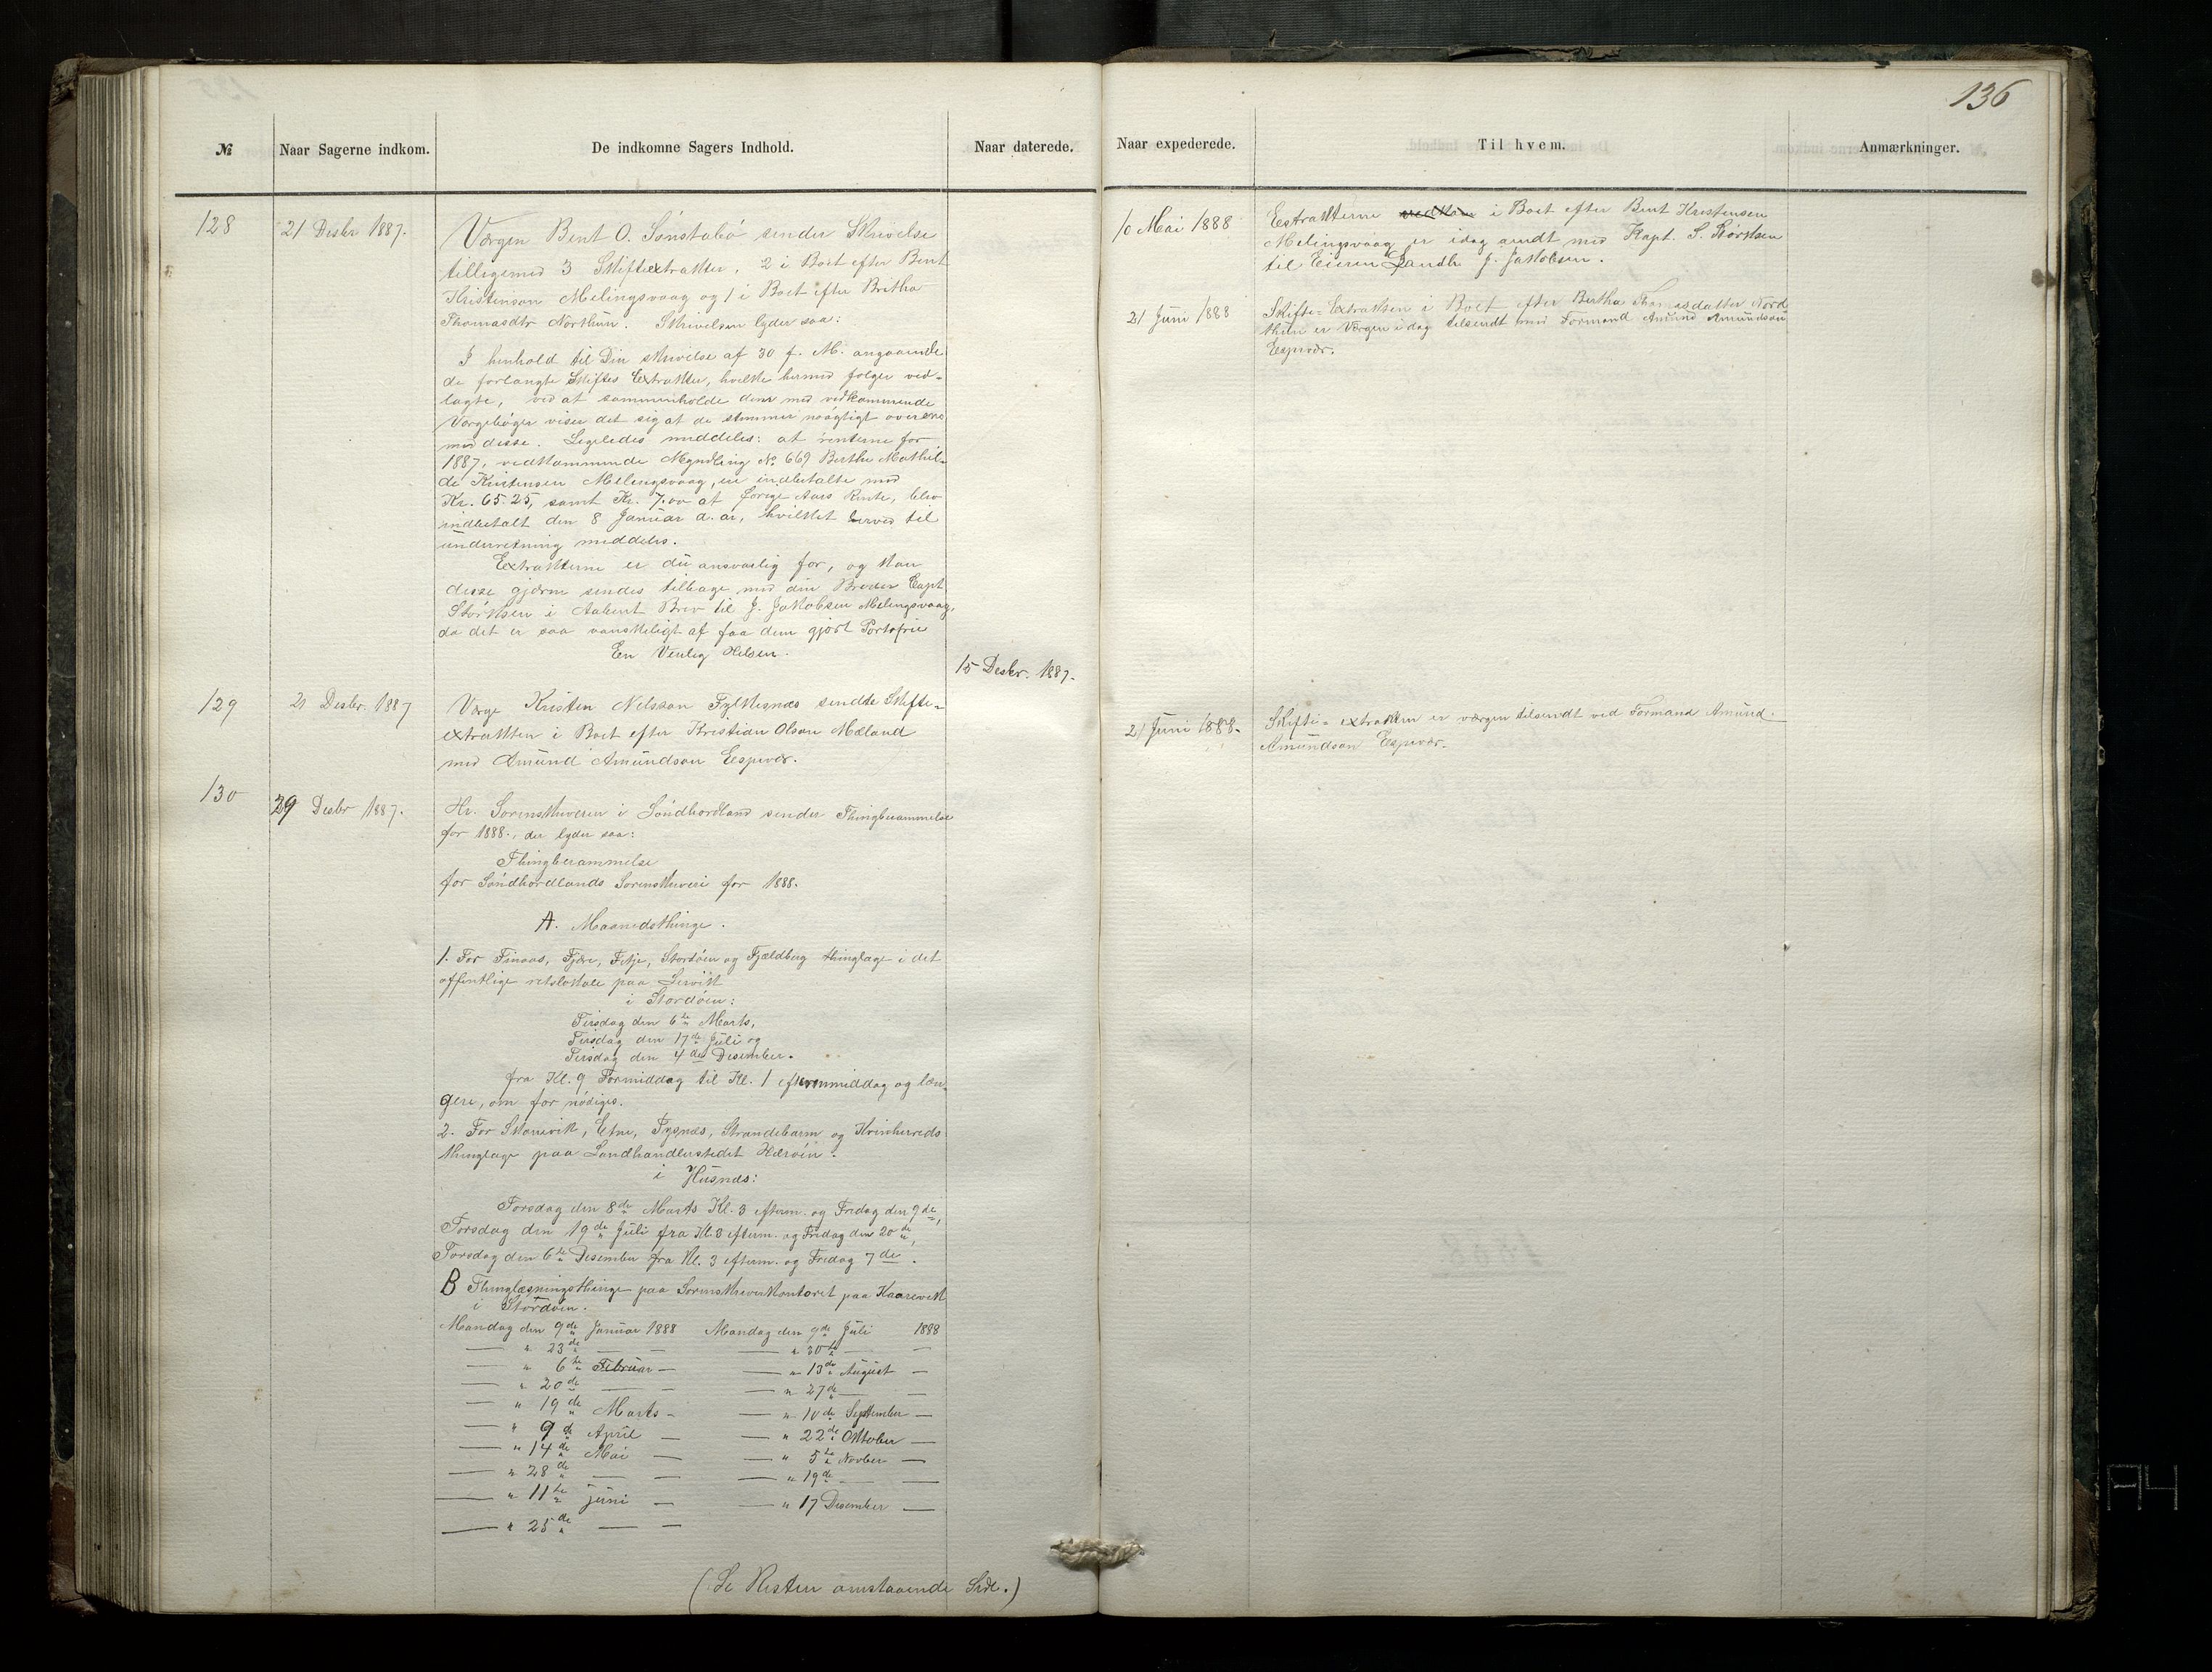 136
№ Naar Sagerne indkom. De indkomne Sagers Indhold. Naar daterede. Naar expederede. Til hvem. Anmærkninger.
128 21 Desbr 1887.
Værgen Bent O. Sønstabø sender Skrivelse
tilligemed 3 Skifteextrakter, 2 i Boet efter Bent
Kristenson Melingsvaag og 1 i Boet efter Britha
Thomasdtr Northun. Skrivelsen lyder saa:
I henhold til Din skrivelse af 30 f. M. angaaende
de forlangte Skiftes Extrakter, hvilke hermed følger ved-
lagte, ved at sammenholde dem med vedkommende
Værgebøger viser det sig at de stemmer nøagtigt overens
med disse. Ligeledes meddeles: at renterne for
1887, vedkommende Myndling No 669 Berthe Mathil-
de Kristensen Melingsvaag, er indbetalte med
Kr. 65.25, samt Kr. 7.00 af forige Aars Rente, blev
indbetalt den 8 Januar d. ar, hvilket herved til
underretning meddeles.
Extrakterne er du ansvarlig for, og kan
disse gjerne sendes tilbage med din Broder Capt
Størksen i Aabent Brev til J. Jakobsen Melingsvaag,
da det er saa vanskeligt af faa dem gjort Portofrie
En Venlig Helsen.
15 Desbr. 1887.
129 21 Desbr. 1887
Værge Kristen Nelsson Fylkesnæs sendte Skifte-
extrakten i Boet efter Kristian Olson Mæland
med Amund Amundson Espevær.
130 29 Desbr 1887.
Hr. Sorenskriveren i Søndhordland sender Thingberammelse
for 1888., der lyder saa:
Thingberammelse
for Søndhordlands Sorenskriveri for 1888.
A. Maanedsthinge.
1. For Finaas, Fjære, Fitje, Stordøen og Fjældberg thinglage i det
offentlige retslokale paa Lervik
i Stordøen:
Tirsdag den 6te Marts,
Tirsdag den 17de Juli og
Tirsdag den 4de Desember.
fra Kl. 9 Formiddag til Kl. 1 eftermiddag og læn-
gere, om for nødiges.
2. For Skonevik, Etne, Tysnæs, Strandebarm og Kvinherreds
thinglage paa Landhandlerstedet Herøen.
i Husnæs:
Torsdag den 8de Marts Kl. 3 efterm. og Fredag den 9de,
Torsdag den 19de Juli fra Kl. 3 efterm. og Fredag den 20de,
Torsdag den 6te Desember fra Kl. 3 efterm. og Fredag 7de.
B Thinglæsningsthinge paa Sorenskriverkontoret paa Kaarevik
i Stordøen.
Mandag den 9de Januar 1888 Mandag den 9de Juli 1888
— " 23de — — — " 30te — —
— " 6te Februar — — " 13de August —
— " 20de — — — " 27de — —
— " 19de Marts — — " 10de September —
— " 9de April — — " 22de Oktober —
— " 14de Mai — — " 5te Novber —
— " 28de — — — " 19de — —
— " 11te juni — — " 17 Desember —
— " 25de — —
(Se Resten omstaaende Side.)
10 Mai 1888
Extrakterne i Boet efter Bent Kristensen
Melingsvaag er idag sendt med Kapt. S. Størksen
til Eieren Landh. J. Jakobsen.
21 Juni 1888
Skifte-Extrakten i Boet efter Bertha Thomasdatter Nord
thun er Værgen i dag tilsendt med Formand Amund Amundson
Espevær.
21 Juni 1888.
Skifte-extrakten er værgen tilsendt ved Formand Amund
Amundson Espevær.
A4